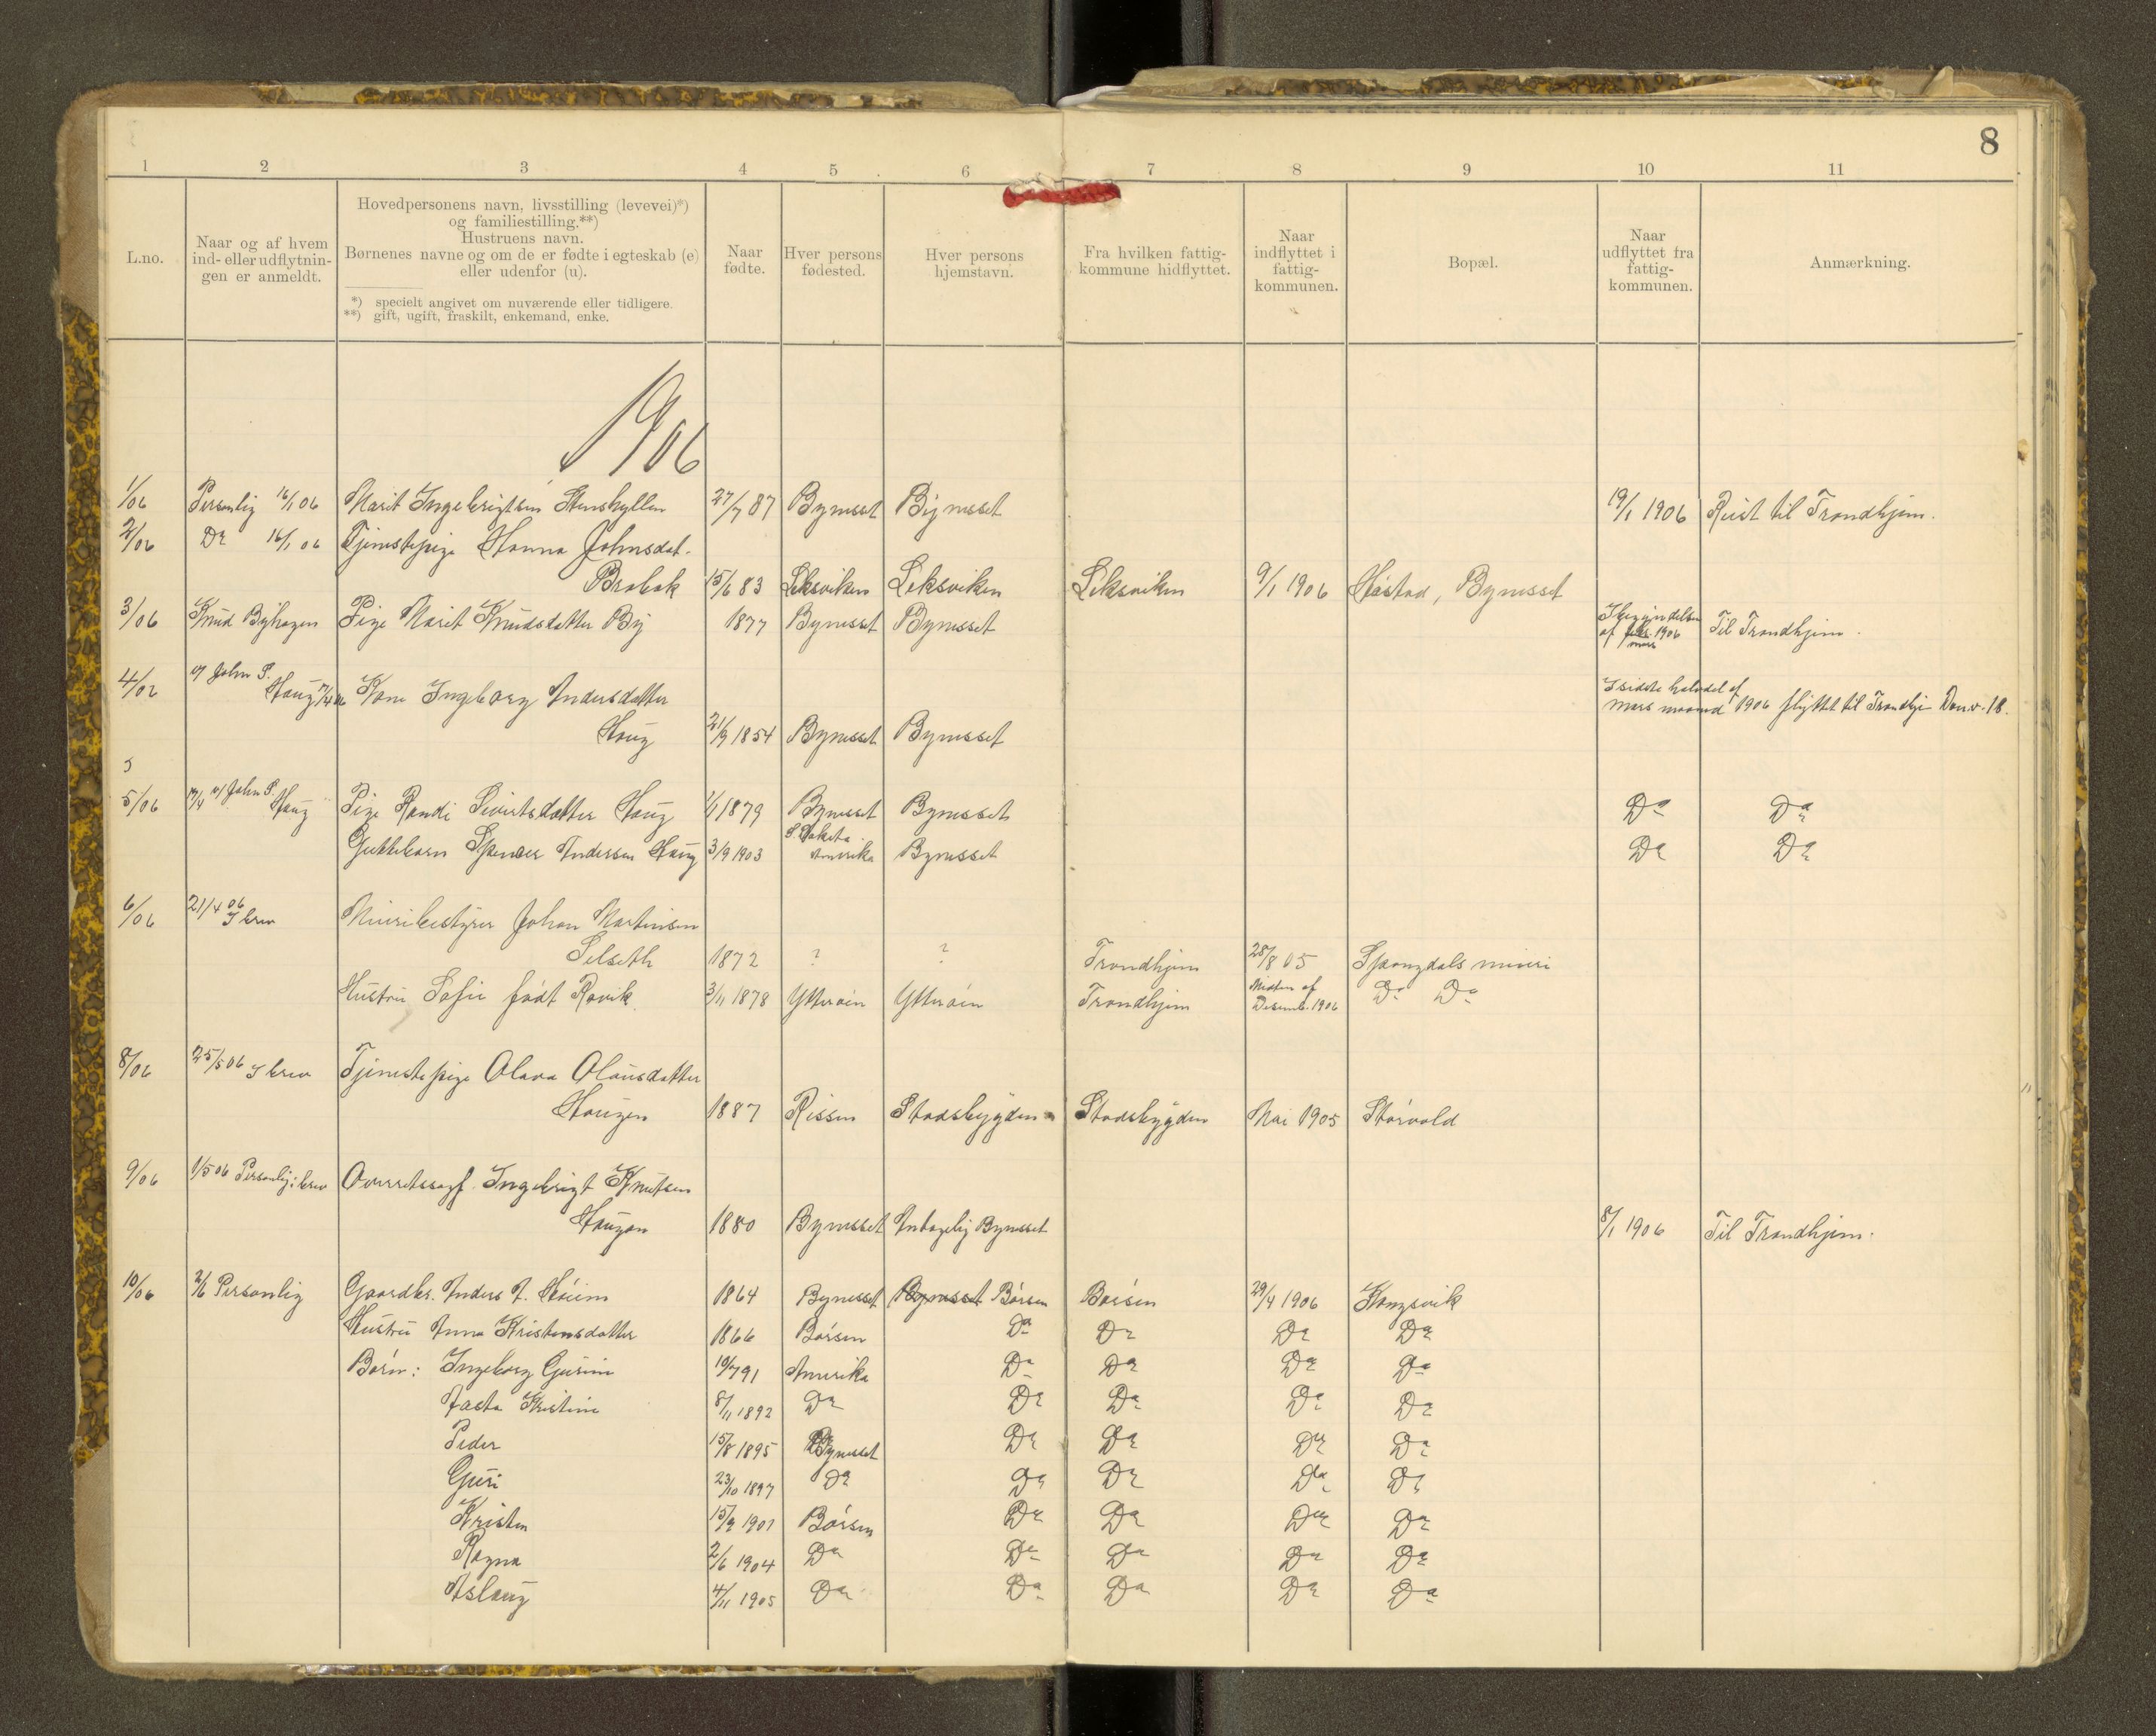 8
1 2 3 4 5 6 7 8 9 10 11
L.no.
Naar og af hvem
ind- eller udflytnin-
gen er anmeldt.
Hovedpersonens navn, livsstilling (levevei)*)
og familiestilling.**)
Hustruens navn.
Børnenes navne og om de er fødte i egteskab (e)
eller udenfor (u).
*) specielt angivet om nuværende eller tidligere.
**) gift, ugift, fraskilt, enkemand, enke.
Naar
fødte.
Hver persons
fødested.
Hver persons
hjemstavn.
Fra hvilken fattig-
kommune hidflyttet.
Naar
indflyttet i
fattig-
kommunen.
Bopæl.
Naar
udflyttet fra
fattig-
kommunen.
Anmærkning.
1906
1/06 Personlig 16/1 06 Marit Ingebrigtsen Stenshyllen 27/7 87 Bynesset Bynesset 19/1 1906 Reist til Trondhjem.
2/06 Do 16/1 06 Tjenestepige Hanna Johnsdat.
Brobak 15/6 83 Leksviken Leksviken Leksviken 9/1 1906 Høstad, Bynesset
3/06 Knud Byhagen Pige Marit Knudsdatter By 1877 Bynesset Bynesset I begyndelsen
af mars 1906 Til Trondhjem.
4/06 af John S.
Haug 17/4 06 Kone Ingeborg Andersdatter I sidste halvdel af
mars maaned 1906 flyttet til Trondhje 18.
Haug 21/9 1854 Bynesset Bynesset
5
5/06 17/4 af John S.
Haug Pige Randi Sivertsdatter Haug 1/1 1879 Bynesset Bynesset Do Do
Guttebarn Spencer Andersen Haug 3/9 1903 S. Dakota
Amerika Bynesset Do Do
6/06 21/4 06 I brev Meieribestyrer Johan Martinsen
Selseth 1872 ? ? Trondhjem 28/8 05 Spongdals meieri
Hustru Sofie født Rovik. 3/11 1878 Ytterøen Ytterøen Trondhjem Midten af
Desemb. 1906 Do Do
8/06 25/5 06 I brev Tjenestepige Olava Olausdatter
Haugen 1887 Rissen Stadsbygden Stadsbygden Mai 1905 Storvold
9/06 1/5 06 Personlig i brev Overretssagf. Ingebrigt Knutsen
Haugan 1880 Bynesset Antagelig Bynesset 8/1 1906 Til Trondhjem.
10/06 2/6 Personlig Gaardbr. Anders A. Høiem 1864 Bynesset Bynesset Børsen Børsen 29/4 1906 Kongsvik
Hustru Anna Kristensdatter 1866 Børsen Do Do Do Do
Børn: Ingeborg Gurine 10/7 91 Amerika Do Do Do Do
Jasta Kristine 8/11 1892 Do Do Do Do Do
Peder 15/8 1895 Bynesset Do Do Do Do
Guri 23/10 1897 Do Do Do Do Do
Kristen 15/9 1901 Børsen Do Do Do Do
Ragna 2/6 1904 Do Do Do Do Do
Aslaug 4/11 1905 Do Do Do Do Do